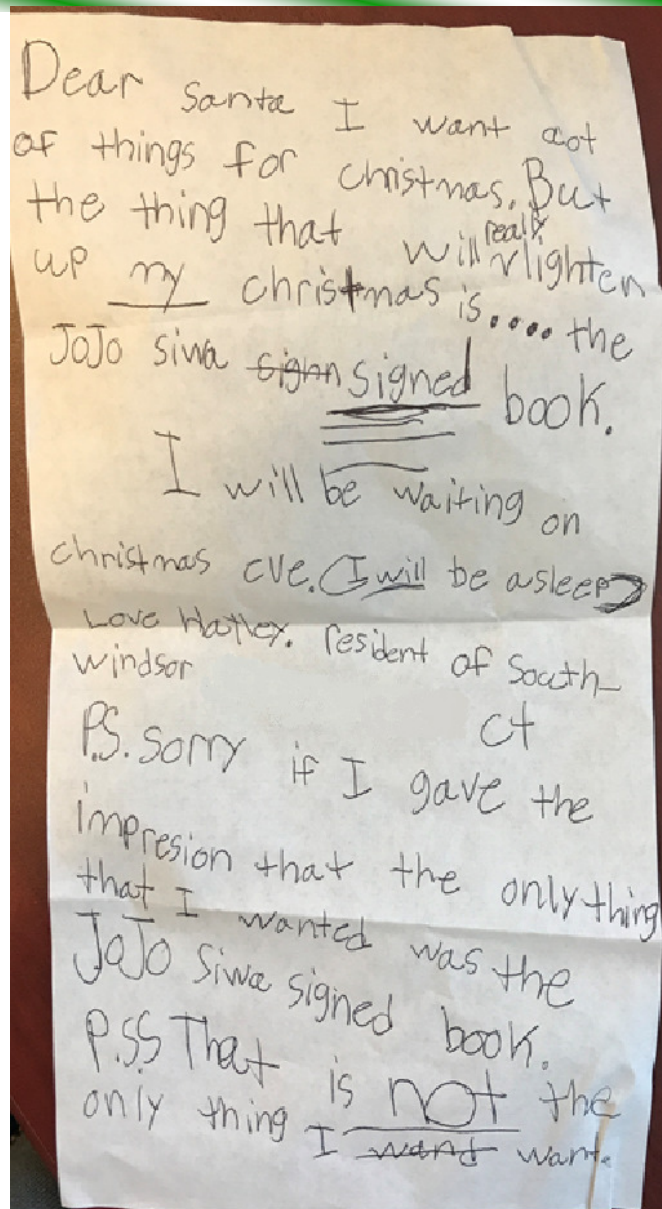 Dear Santa I want aot
of things for christmas. But
the thing that will really lighten
up my christmas is.... the
JoJo siwa signn signed book.
I will be waiting on
christmas eve. (I will be asleep)
Love Hatley. resident of South-
windsor
ct
P.S. sorry if I gave the
impresion that the only thing
that I wanted was the
JoJo Siwa signed book.
P.S.S That is not the
only thing I want want.